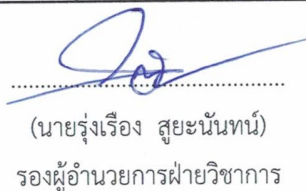 (นายรุ่งเรือง สูยะนันทน์)
รองผู้อำนวยการฝ่ายวิชาการ